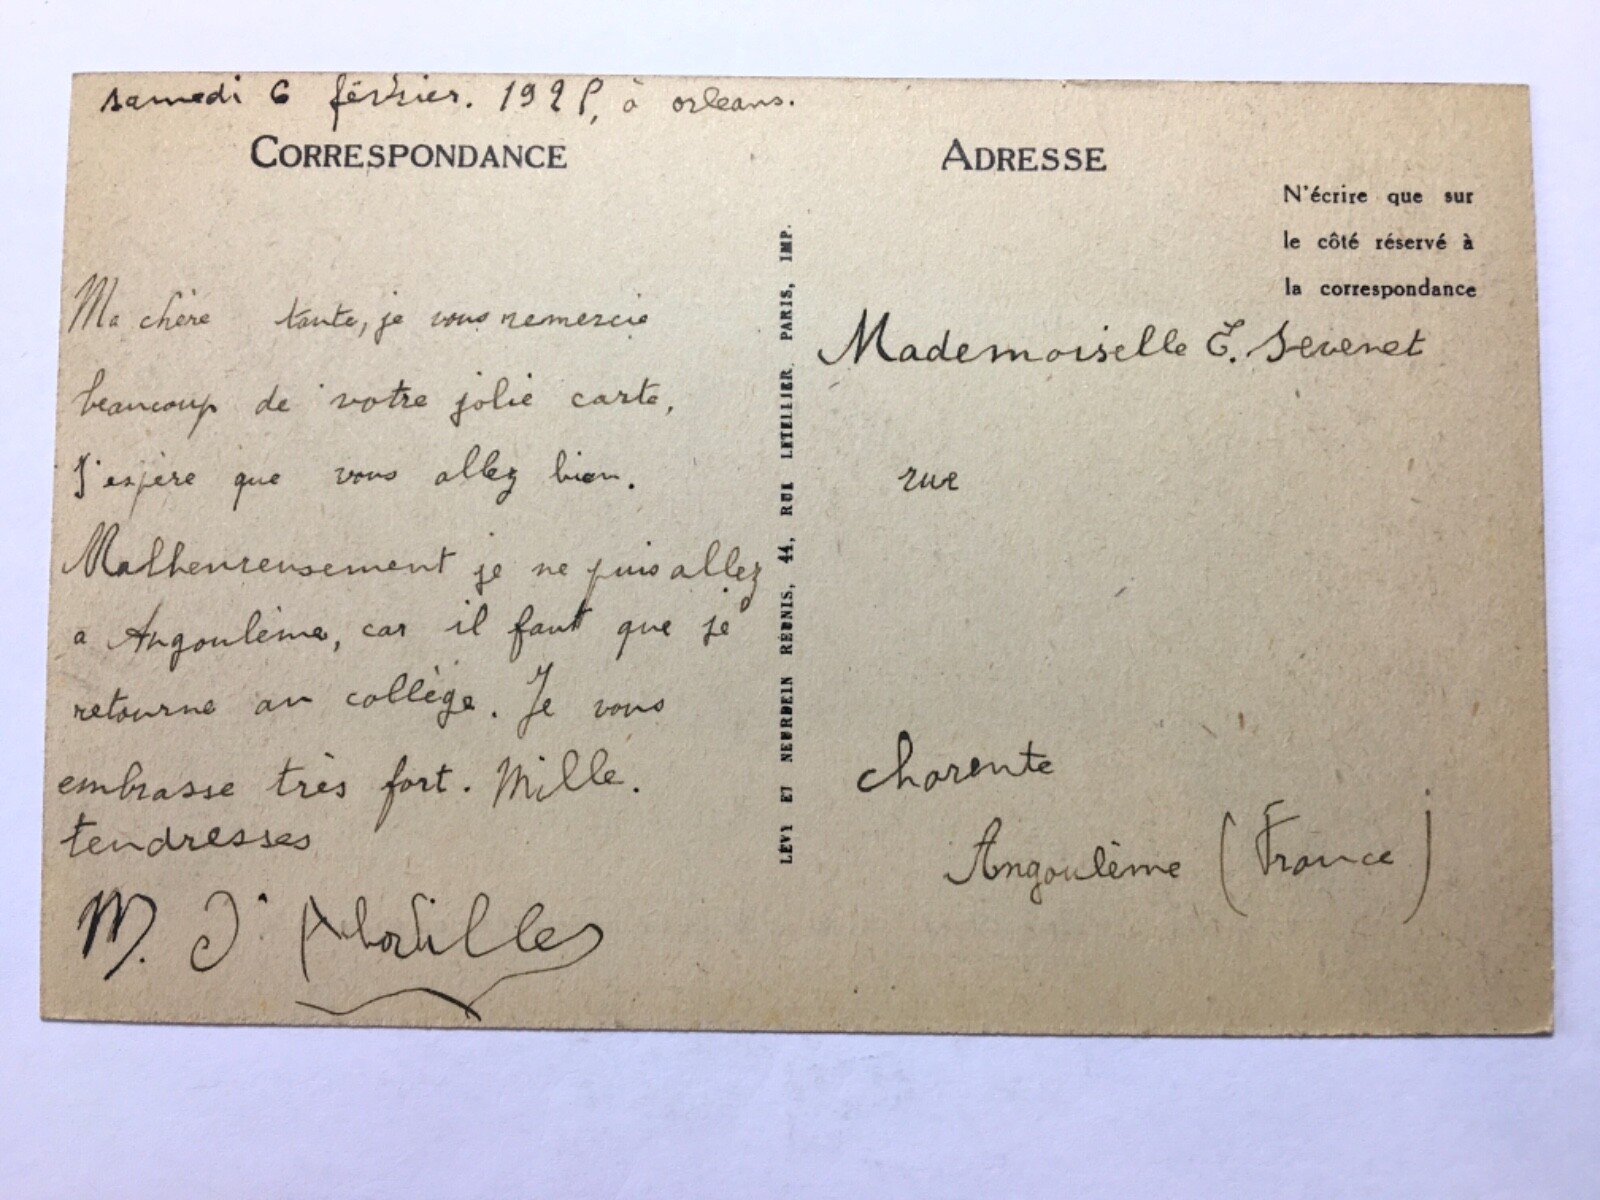 samedi 6 février. 192 , à orleans.
CORRESPONDANCE
Ma chère tante, je vous remercie
beaucoup de votre jolie carte,
J'espère que vous allez bien.
Malheureusement je ne puis allez
a Angoulème, car il faut que je
retourne au collège. Je vous
embrasse très fort. Mille.
tendresses
M. J.
LÉVY ET NEURDEIN RÉUNIS, 44, RUE LETELLIER, PARIS, IMP.
ADRESSE
N'écrire que sur
le côté réservé à
la correspondance
Mademoiselle E. Sevenet
rue
charente
Angoulème (France)